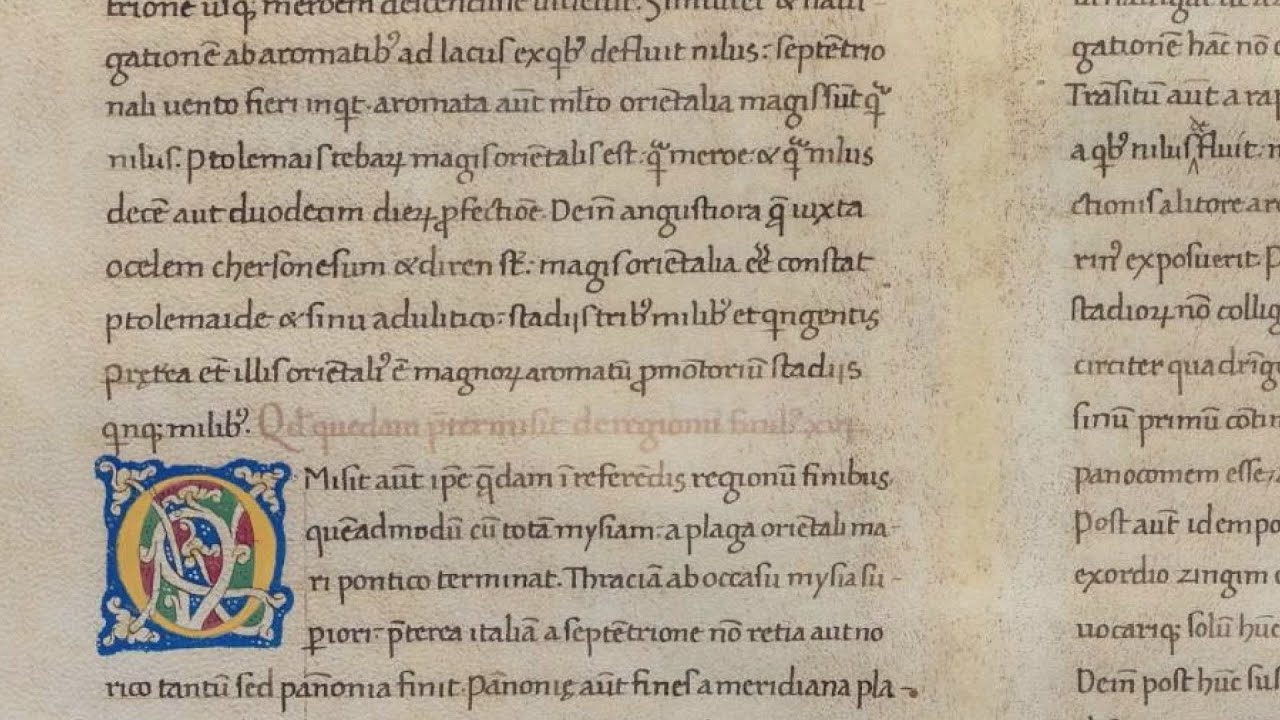 gationē ab aromatibꝰ ad lacus ex qbꝰ defluit nilus: septētrio
nali uento fieri inqt. aromata aūt ml̄to oriētalia magis sūt q̄
nilus. Ptolemais tebaꝝ magis oriētalis est. q̄ meroe: & q̄ nilus
decē aut duodecim dieꝝ ꝓfectiōe. Dein̄ angustiora q̄ iuxta
ocelem chersonesum & diren st̄: magis oriētalia eē constat
ptolemaide & sinu adulitico: stadijs tribꝰ milibꝰ et qngentis
p̄terea et̄ illis oriētalꝰ ē magnoꝝ aromatū ꝓmōtoriū stadijs
qnq; milibꝰ. Qd̄ quedam p̄termisit de regionū finibꝰ. xvi.
OMisit aūt ip̄e q̄dam ī referēdis regionū finibus
quēadmodū cū totā mysiam: a plaga oriētali ma-
ri pontico terminat. Thraciā ab occasu mysia su-
periori: p̄terea italiā a septētrione nō retia aut no
rico tantū sed pan̄onia finit. Pan̄onię aūt fines a meridiana pla-
gationē hāc nō
Trāsitū aūt a rap
a qbꝰ nilus fluit:
ctionis alitore
rinꝰ exposuerit
stadioꝝ nō collig
circiter quadrīg
sinū primū
panocomem esse
Post aūt idem po
exordio zingim
uocariq; solū hūc
Dein̄ post hūc sus